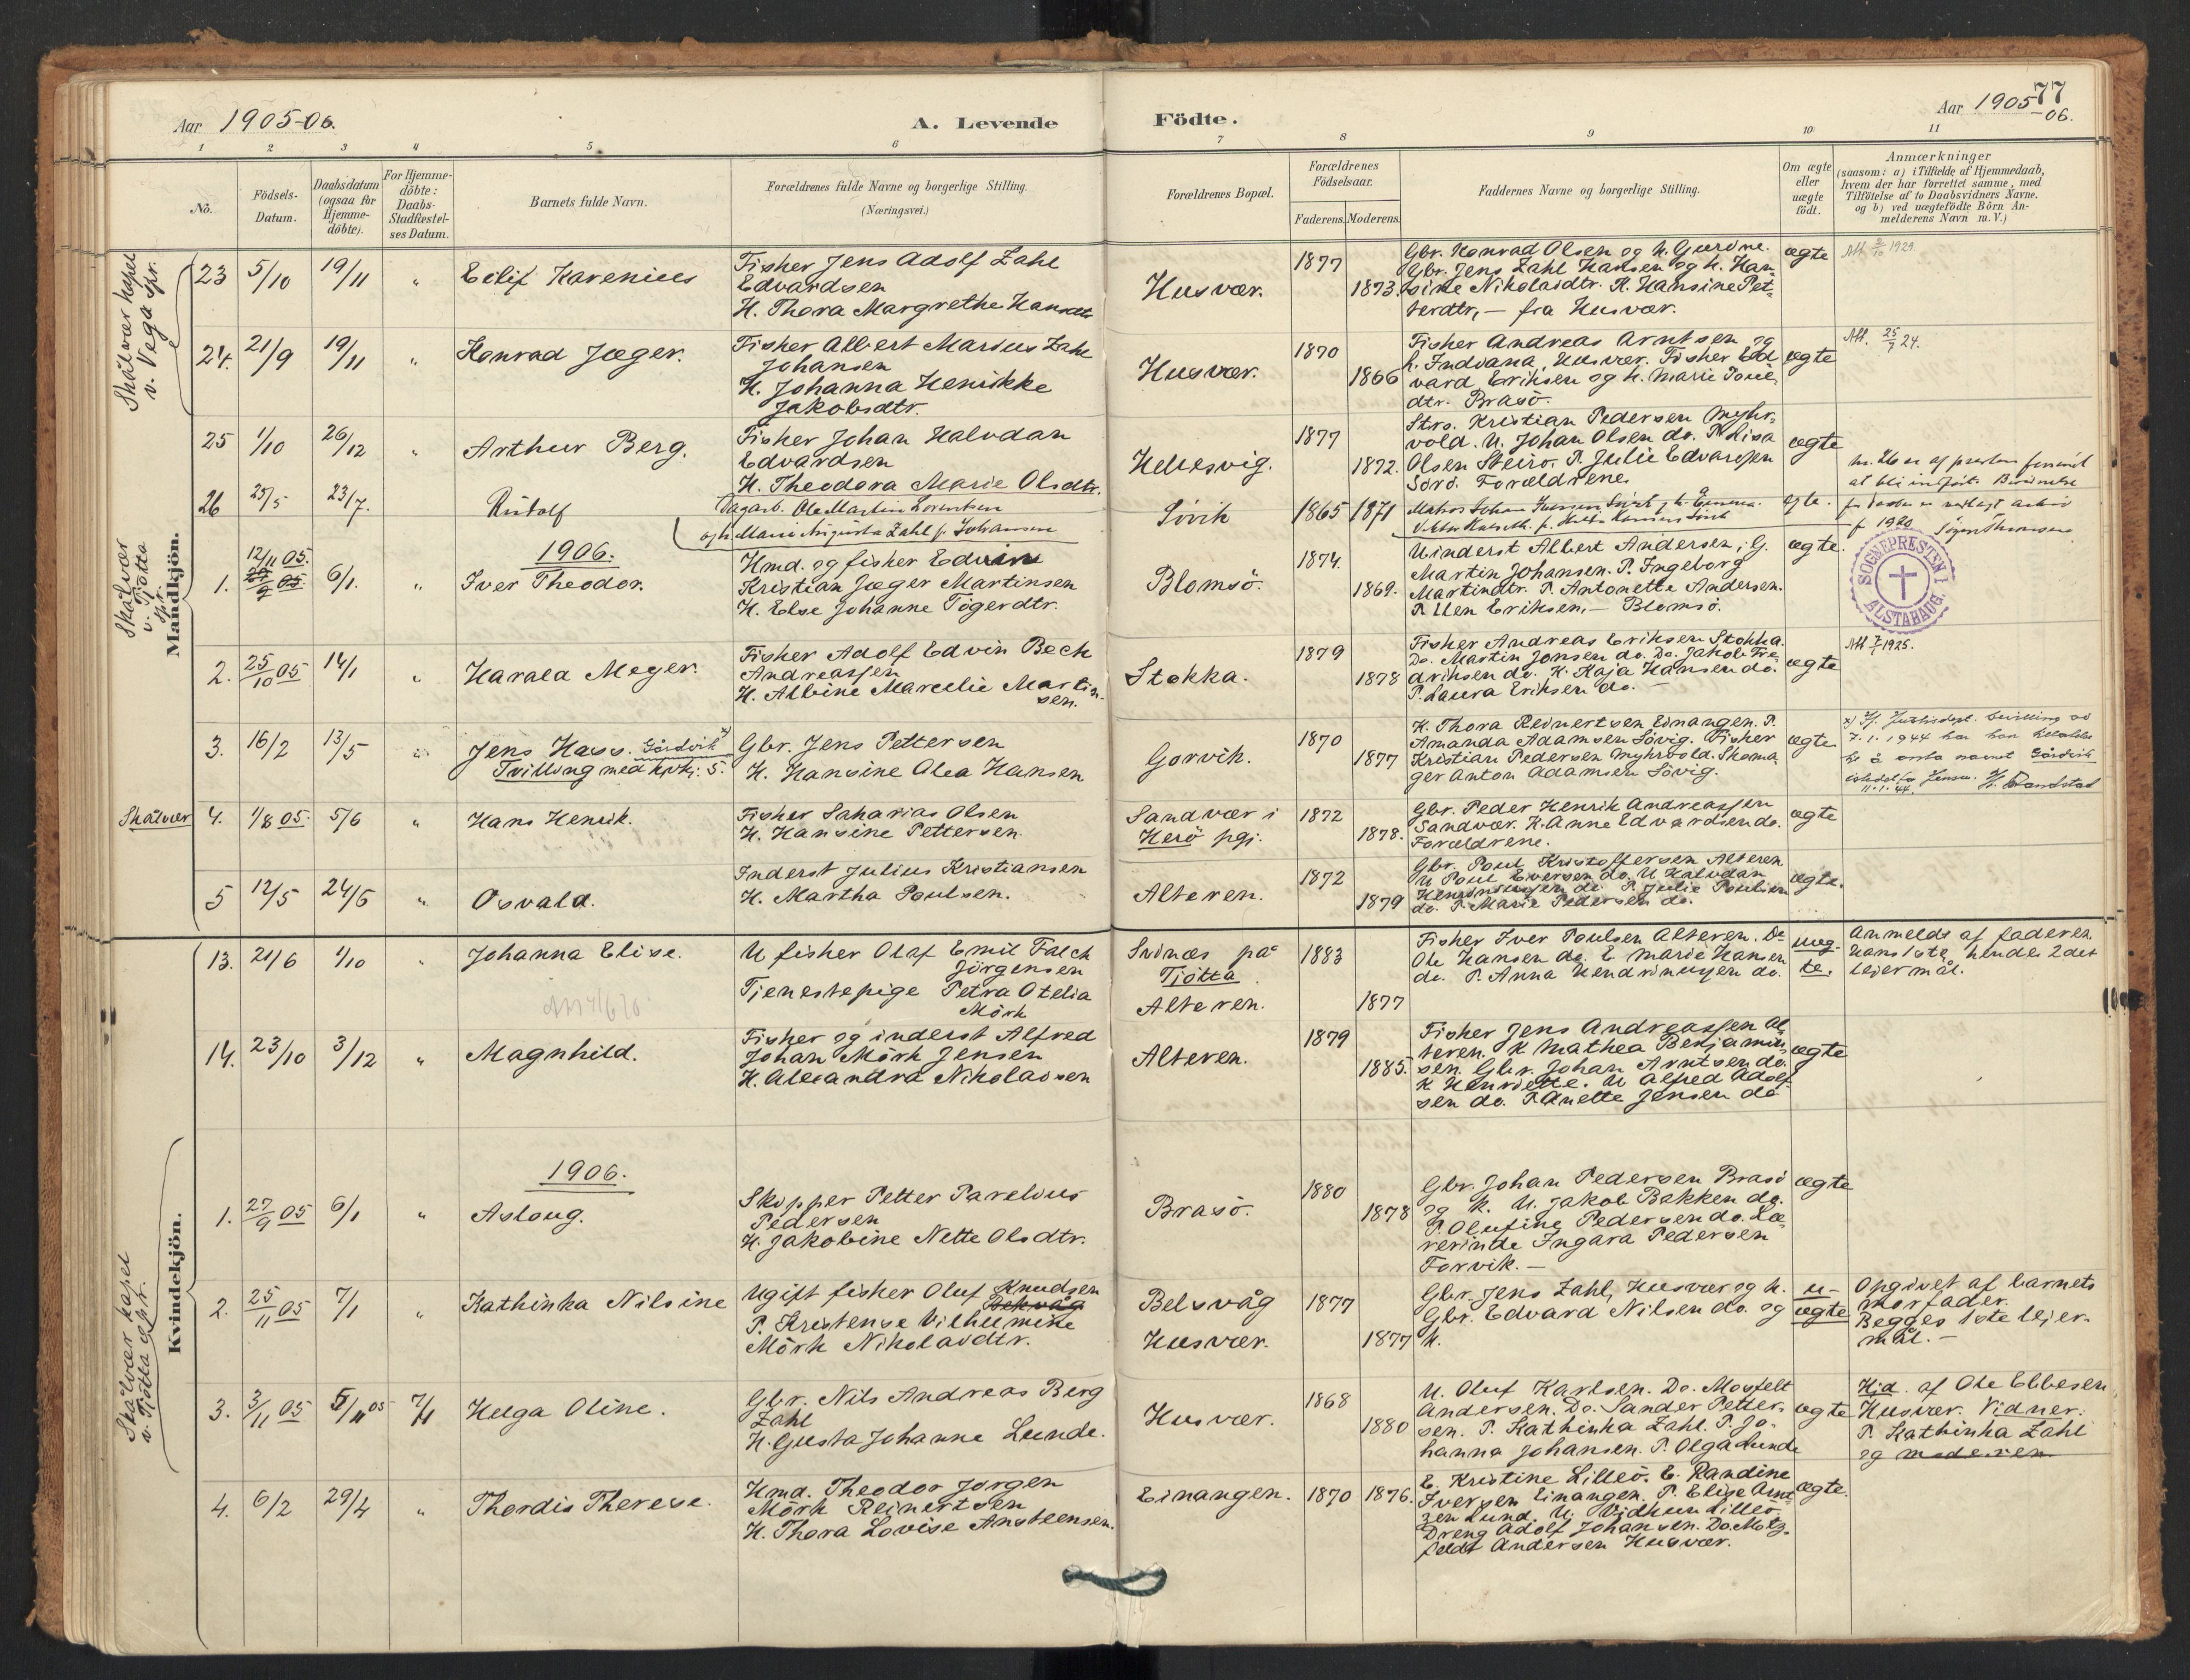 77
Aar 1905-06.
A. Levende
Födte.
Aar 1905-06.
1 2 3 4 5 6 7 8 9 10 11
No.
Födsels-Datum.
Daabsdatum (ogsaa for Hjemme-döbte).
For Hjemme-döbte: Daabs-Stadfæstel-ses Datum.
Barnets fulde Navn.
Forældrenes fulde Navne og borgerlige Stilling.
(Næringsvei.)
Forældrenes Bopæl.
Forældrenes Födselsaar.
Faderens. Moderens.
Faddernes Navne og borgerlige Stilling.
Om ægte eller uægte födt.
Anmærkninger
(saasom: a) i Tilfælde af Hjemmedaab,
hvem der har forrettet samme, med
Tilföielse af to Daabsvidners Navne.
og b) ved uægtefödte Börn An-
melderens Navn m. V.)
Skålvær kapel
v. Vega spr.
23 5/10 19/11 " Eilif Karenius
Fisker Jens Adolf Zahl
Edvardsen
H. Thora Margrethe Hansdtr
Husvær.
1877
1873.
Gbr. Konrad Olsen og h. Gurine.
Gbr. Jens Zahl Hansen og h. Han-
sine Nikolaidtr. K. Hansine Pet-
terdtr, — fra Husvær.
ægte
Att 1929
24. 21/9 19/11 " Konrad Jæger.
Fisker Albert Marius Zahl
Johansen
H. Johanna Henrikke
Jakobsdtr.
Husvær.
1870
1866
Fisker Andreas Arntsen og
h. Indiana, Husvær. Fisker Ed-
vard Eriksen og h. Marie
dtr. Brasö.
ægte
Att. 25/7 24.
25 1/10 26/12 " Arthur Berg.
Fisker Johan Halvdan
Edvardsen
H. Theodora Marie Olsdtr.
Hellesvig.
1877
1872.
Strs. Kristian Pedersen Myhr-
vold. U. Johan Olsen do. P. Lisa
Olsen Steiro. P. Julie Edvardsen
Forældrene
ægte
26 25/5 23/7. Rudolf
Dagarb. Ole Martin Lorentsen
og h. Maria Augusta Zahl f. Johansen
Sövik
1865 1871
ægte.
f 1920
Skålvær
v. Tjötta
spr.
Mandkjön.
1906.
1. 12/11 05. 6/1. " Iver Theodor.
Hmd. og fisker Edvin
Kristian Jæger Martinsen
H. Else Johanne Tögerdtr.
Blomsö.
1874.
1869.
U inderst Albert Andersen, G.
Martin Johansen. P. Ingeborg
Martindtr. P. Antonette Andersen.
P. Ellen Eriksen, — Blomsö.
ægte.
SOGNEPRESTEN I ALSTAHAUG.
2. 25/10 05 14/1 " Harald Meyer.
Fisker Adolf Edvin Bech
Andreassen
H. Albine Marcelie Martin-
sen.
Stokka.
1879
1878
Fisker Andreas Eriksen Stokka.
Do. Martin Jonsen do. Do. Jakob Fre-
driksen do. K. Kaja Hansen do.
P. Laura Eriksen do. —
ægte
Att 7/7 1925.
3. 16/2 13/5 " Jens Hass. Gårdvik x)
Tvilling med kvkj. 5.
Gbr. Jens Pettersen
H. Hansine Olea Hansen
Gorvik.
1870
1877
K. Thora Reinertsen Einangen. P.
Amanda Adamsen Sövig. Fisker
Kristian Pedersen Myhrvold. Skoma-
ger Anton Adamsen Sövig.
ægte
x) If. Justisdept. bevilling av
7.1.1944 har han
til å anta navnet Gårdvik
istedetfor Jensen.
11.1.44.
Skålvær
4. 1/8 05. 5/6 " Hans Henrik.
Fisker Saharias Olsen
H. Hansine Pettersen
Sandvær i
Herö pgj.
1872
1878.
Gbr. Peder Henrik Andreassen
Sandvær. K. Anne Edvardsen do.
Forældrene.
ægte
5 12/5 24/6 " Osvald.
Inderst Julius Kristiansen
H. Martha Poulsen.
Alteren.
1872
1879
Gbr. Poul Kristoffersen Alteren
U Poul Eversen do. U Halvdan
do P. Julie Poulsen
do. P. Marie Pedersen do.
ægte.
13. 21/6 1/10 " Johanna Elise.
U fisker Olaf Emil Falch
Jörgensen
Tjenestepige Petra Otelia
Mörk
Svinæs på
Tjötta
Alteren.
1883
1877
Fisker Iver Poulsen Alteren. Do
Ole Hansen do. E Marie Hansen
do. P. Anna Hendriksen do.
uæg-
te.
Anmelds af faderen
Hans 1ste, hendes 2det
leiermål.
14. 23/10 3/12 " Magnhild.
Fisker og inderst Alfred
Johan Mörk Jensen
H. Alexandra Nikolaisen
Alteren.
1879
1885.
Fisker Jens Andreassen Al-
teren. K Mathea Benjamin-
sen. Gbr. Johan Arntsen do.
K Henriette. U Alfred Adolf-
sen do. P Anette Jensen do
ægte
Kvindekjön.
Skålvær kapel
v. Tjötta spr.
1906.
1. 27/9 05 6/1 " Aslaug.
Skipper Petter Parelius
Pedersen
H. Jakobine Nette Olsdtr.
Brasö.
1880
1878
Gbr. Johan Pedersen Brasö
og h. U. Jakob Bakken do.
P. Olufine Pedersen do. Læ-
rerinde Ingara Pedersen
Forvik. —
ægte
2. 25/11 05 7/1 " Kathinka Nilsine
Ugift fisker Oluf Knudsen
P. Kristense Vilhelmine
Mörk Nikolaidtr.
Belsvåg
Husvær.
1877
1877
Gbr. Jens Zahl, Husvær og h.
Gbr. Edvard Nilsen do. og
h.
u-
ægte
Opgivet af barnets
morfader.
Begges 1ste leier-
mål. —
3. 3/11 05 5/11 05 7/1 Helga Oline.
Gbr. Nils Andreas Berg
Zahl
H. Gusta Johanne Lunde.
Husvær.
1868
1880
U. Oluf Karlsen. Do. Mosfelt
Andersen. Do. Sander Petter-
sen. P. Kathinka Zahl. P. Jo-
hanna Johansen. P. Olga Lunde
ægte
Hjd. af Ole Ebbesen,
Husvær. Vidner:
P. Kathinka Zahl
og moderen
4. 6/2 29/4 " Thordis Therese.
Hmd. Theodor Jörgen
Mörk Reinertsen
H. Thora Lovise Ansteensen.
Einangen.
1870 1876.
E. Kristine Lilleö. E. Randine
Iversen Einangen. P. Elise Arnt-
zen Lund. U. Vidkun Lilleö
Dreng Adolf Johansen. Do. Motz-
feldt Andersen Husvær.
ægte.